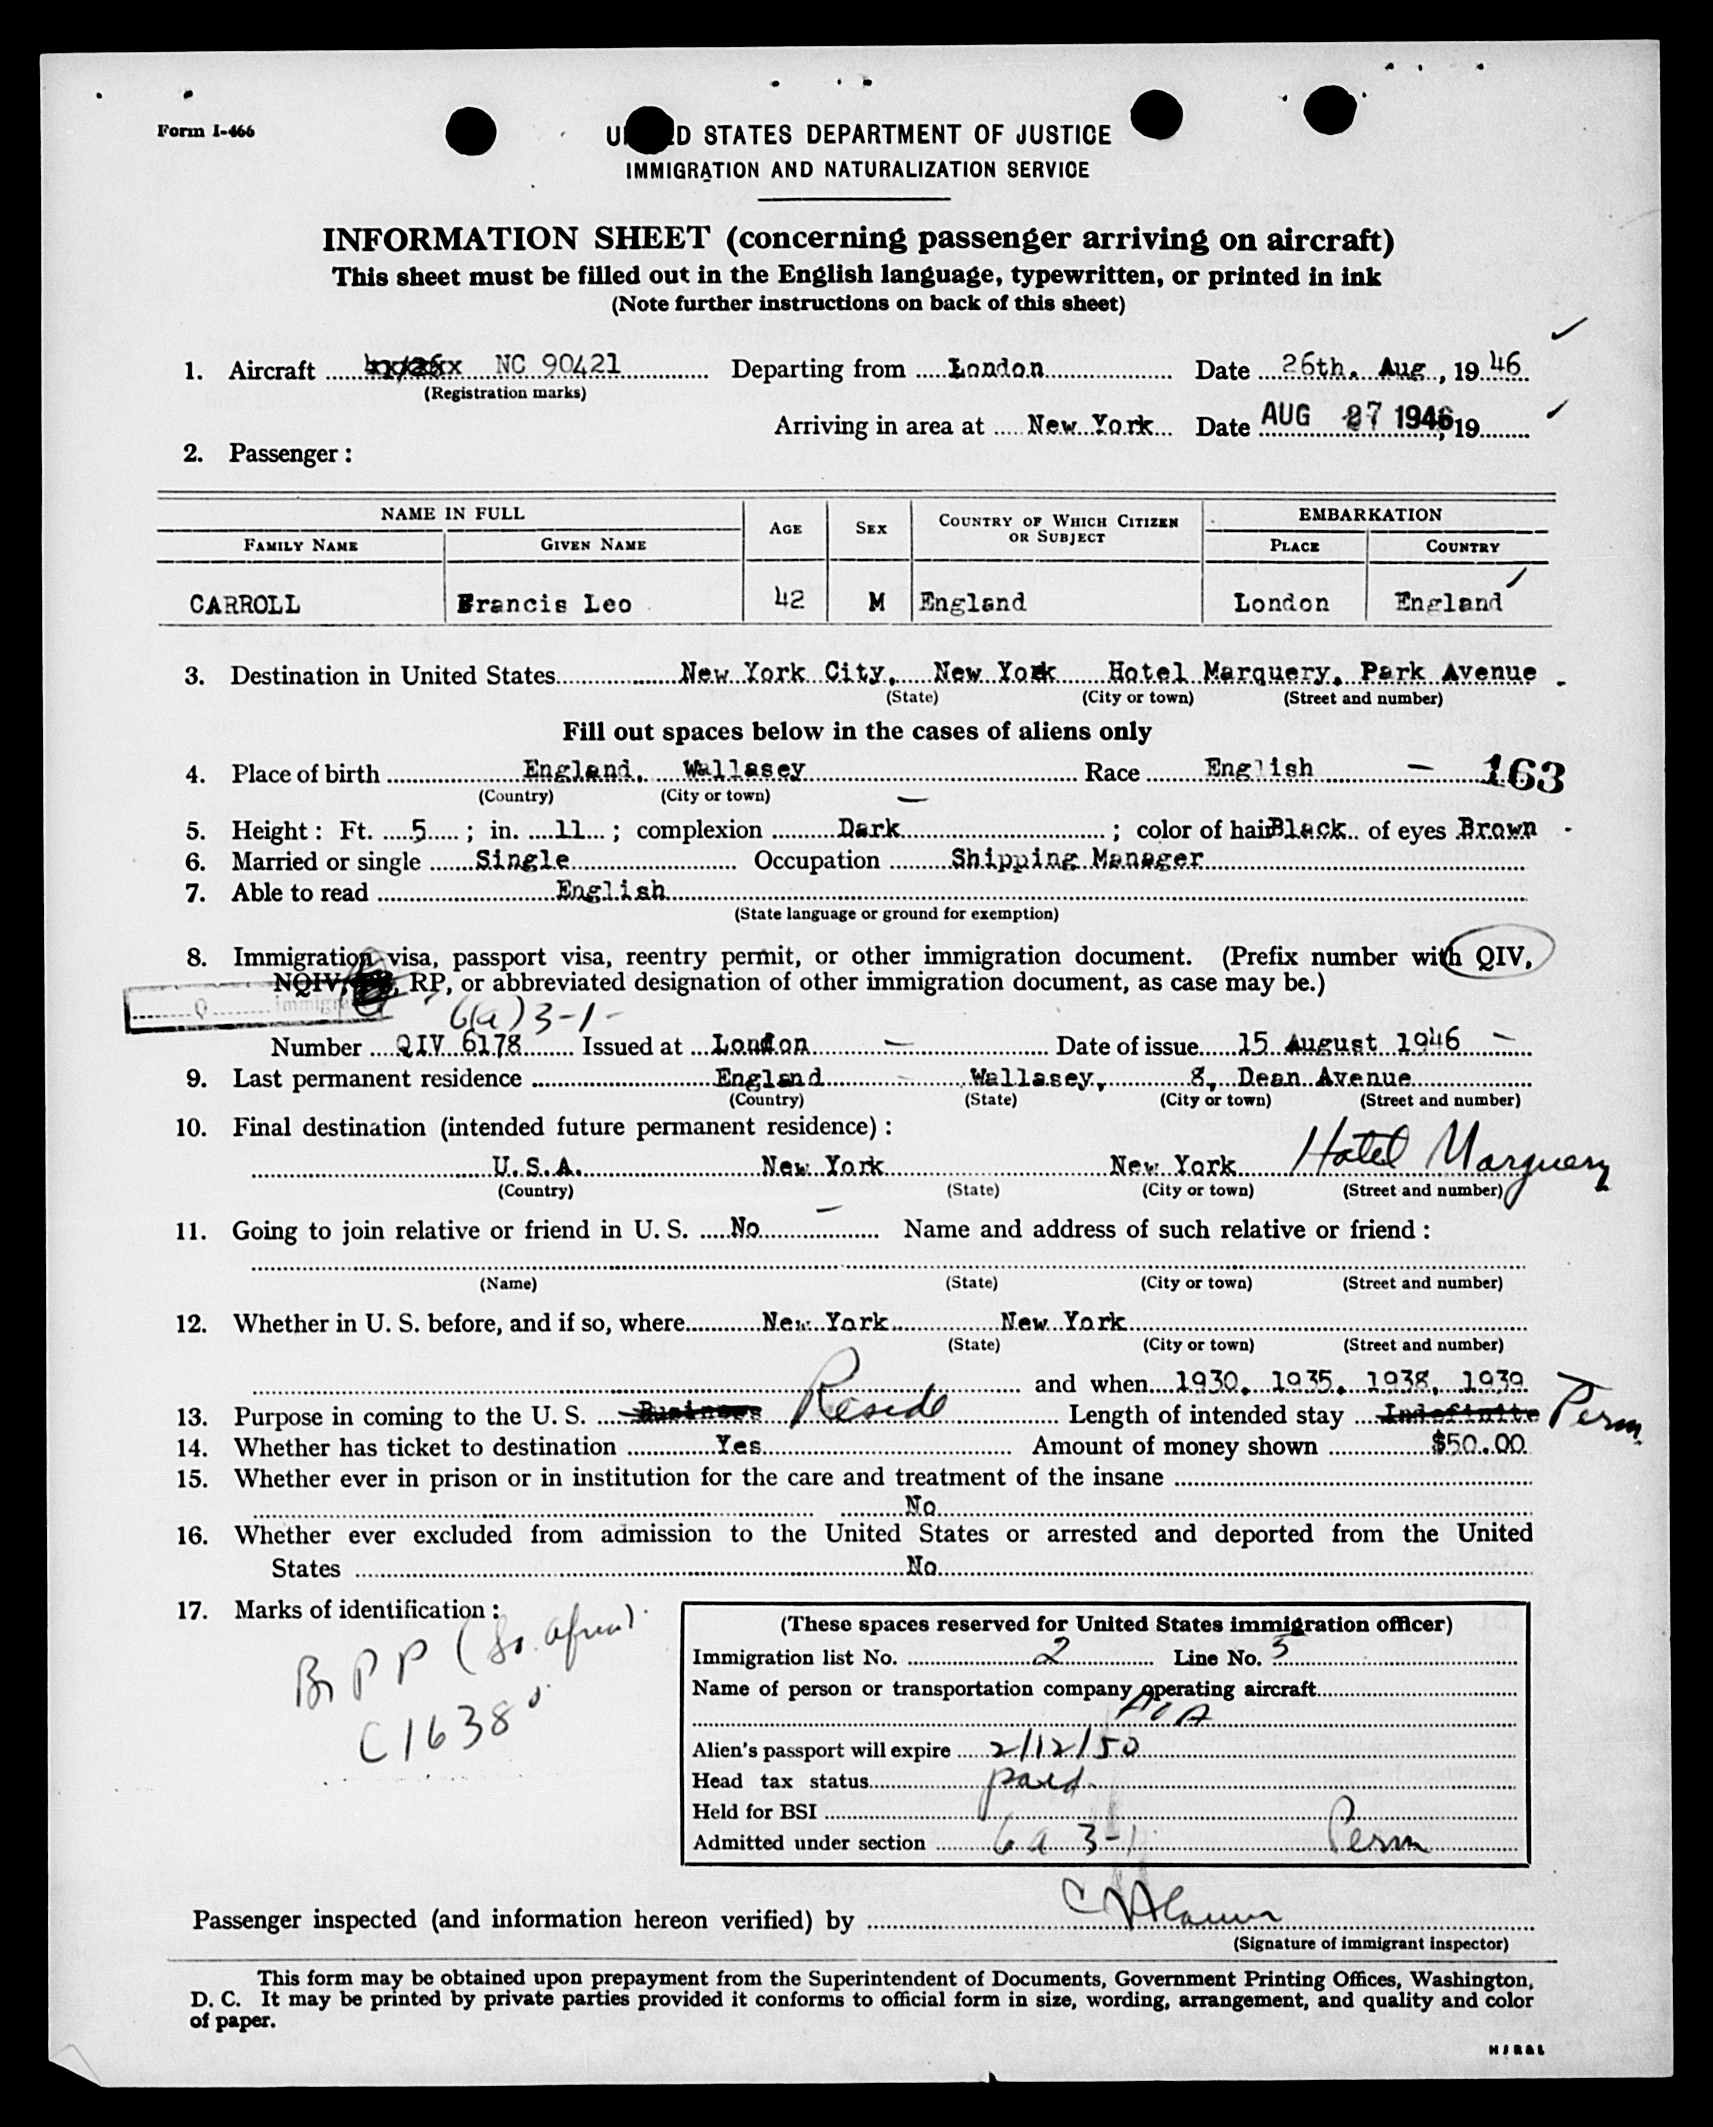 Form I-466
UNITED STATES DEPARTMENT OF JUSTICE
IMMIGRATION AND NATURALIZATION SERVICE
INFORMATION SHEET (concerning passenger arriving on aircraft)
This sheet must be filled out in the English language, typewritten, or printed in ink
(Note further instructions on back of this sheet)
1. Aircraft NC 90421 Departing from London Date 26th. Aug, 1946
(Registration marks)
Arriving in area at New York Date AUG 27 1946, 19
2. Passenger:
NAME IN FULL AGE SEX COUNTRY OF WHICH CITIZEN OR SUBJECT EMBARKATION
FAMILY NAME GIVEN NAME PLACE COUNTRY
CARROLL Francis Leo 42 M England London England
3. Destination in United States New York City, New York Hotel Marquery, Park Avenue
(State) (City or town) (Street and number)
Fill out spaces below in the cases of aliens only
4. Place of birth England, Wallasey Race English 163
(Country) (City or town)
5. Height: Ft. 5; in. 11; complexion Dark; color of hair Black of eyes Brown
6. Married or single Single Occupation Shipping Manager
7. Able to read English
(State language or ground for exemption)
8. Immigration visa, passport visa, reentry permit, or other immigration document. (Prefix number with QIV,
NQIV, RP, or abbreviated designation of other immigration document, as case may be.)
6(a)3-1-
Number QIV 6178 Issued at London Date of issue 15 August 1946
9. Last permanent residence England Wallasey, 8, Dean Avenue
(Country) (State) (City or town) (Street and number)
10. Final destination (intended future permanent residence):
U.S.A. New York New York Hotel Marquery
(Country) (State) (City or town) (Street and number)
11. Going to join relative or friend in U. S. No Name and address of such relative or friend:
(Name) (State) (City or town) (Street and number)
12. Whether in U. S. before, and if so, where New York New York
(State) (City or town) (Street and number)
and when 1930, 1935, 1938, 1939
13. Purpose in coming to the U. S. Business Reside Length of intended stay Indefinite Perm
14. Whether has ticket to destination Yes Amount of money shown $50.00
15. Whether ever in prison or in institution for the care and treatment of the insane
No
16. Whether ever excluded from admission to the United States or arrested and deported from the United
States No
17. Marks of identification:
Br PP (So. Afric)
C 1638
(These spaces reserved for United States immigration officer)
Immigration list No. 2 Line No. 5
Name of person or transportation company operating aircraft
AOA
Alien's passport will expire 2/12/50
Head tax status paid
Held for BSI
Admitted under section 6a 3-1 Perm
Passenger inspected (and information hereon verified) by
(Signature of immigrant inspector)
This form may be obtained upon prepayment from the Superintendent of Documents, Government Printing Offices, Washington,
D. C. It may be printed by private parties provided it conforms to official form in size, wording, arrangement, and quality and color
of paper.